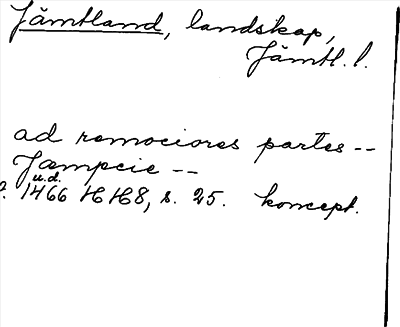 Jämtland, landskap,
Jämtl. l.
ad remociores partes --
Jæmpcie --
u.d.
1466 HH8, s. 25. koncept.